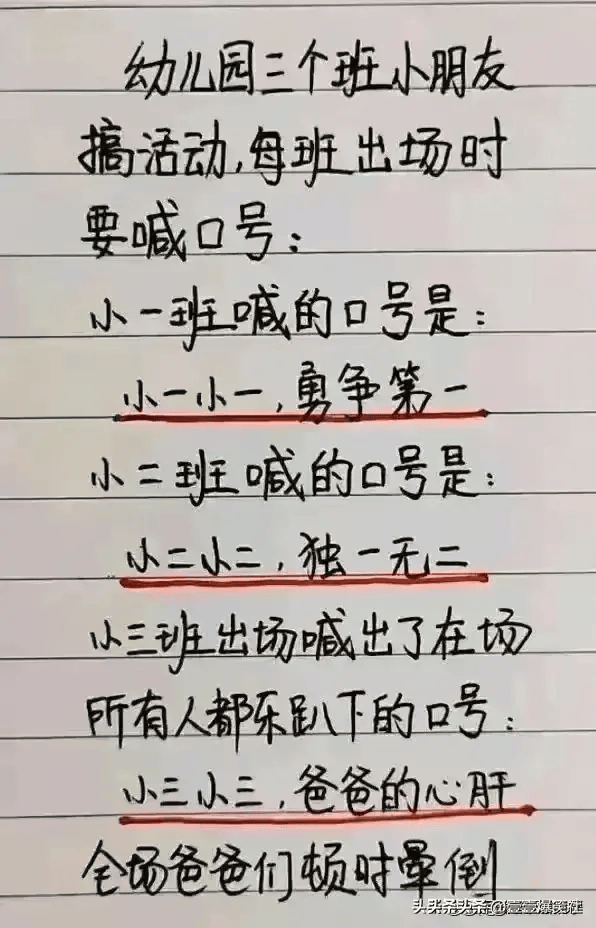 幼儿园三个班小朋友
搞活动,每班出场时
要喊口号:
小一班喊的口号是:
小一小一,勇争第一
小二班喊的口号是:
小二小二,独一无二
小三班出场喊出了在场
所有人都乐趴下的口号:
小三小三,爸爸的心肝
全场爸爸们顿时晕倒
头条@壹壹爆笑